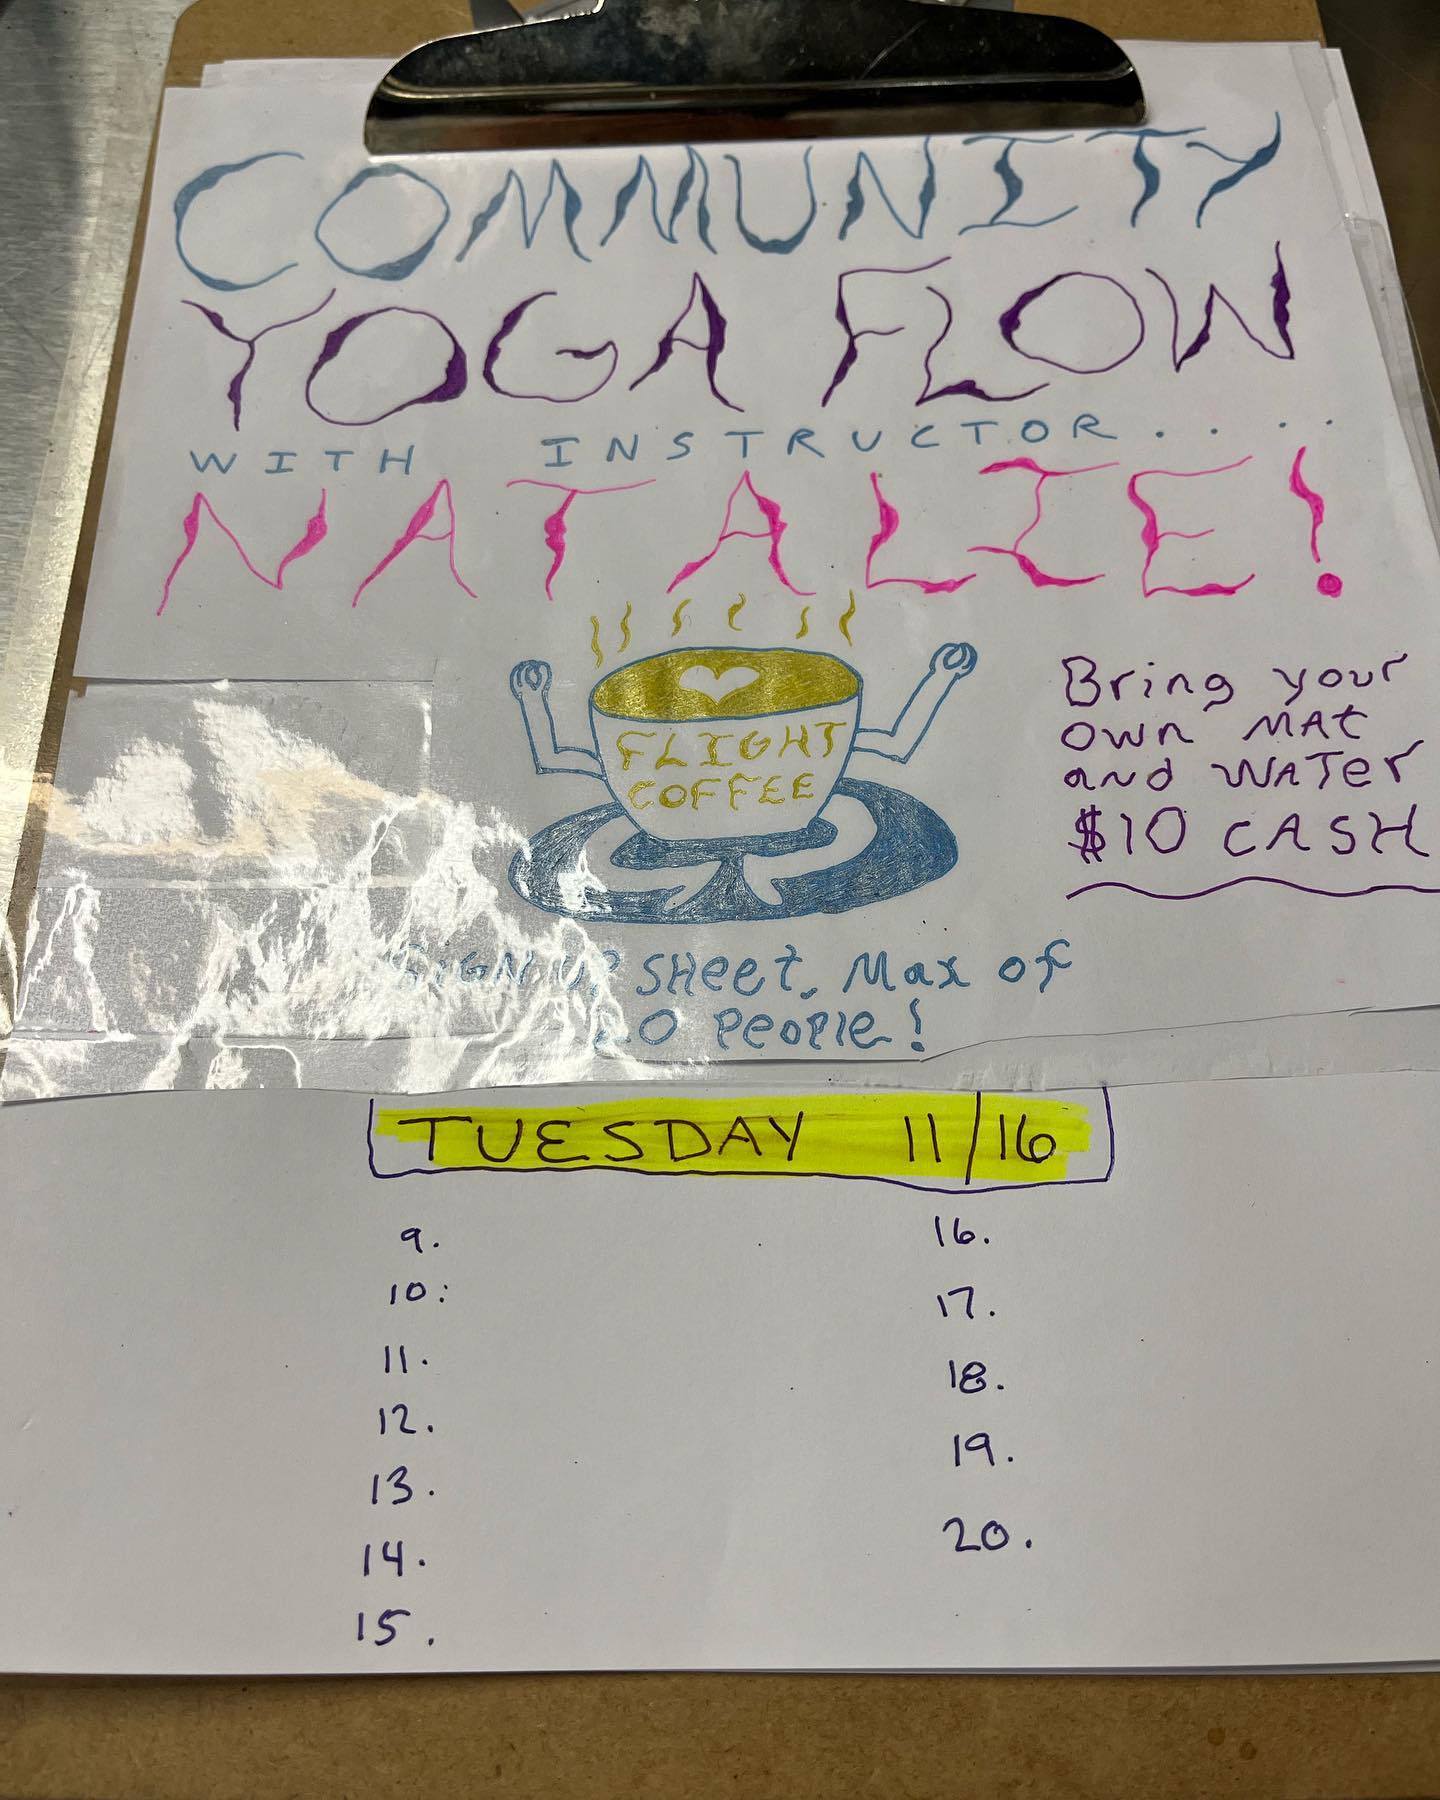 COMMUNITY
YOGA FLOW
WITH INSTRUCTOR.....
NATALIE!
FLIGHT
COFFEE
Bring your
own MAt
and WATer
$10 CASH
SIGN UP SHeet. Max of
20 PeoPle!
TUESDAY 11/16
9.
10:
11.
12.
13.
14.
15.
16.
17.
18.
19.
20.